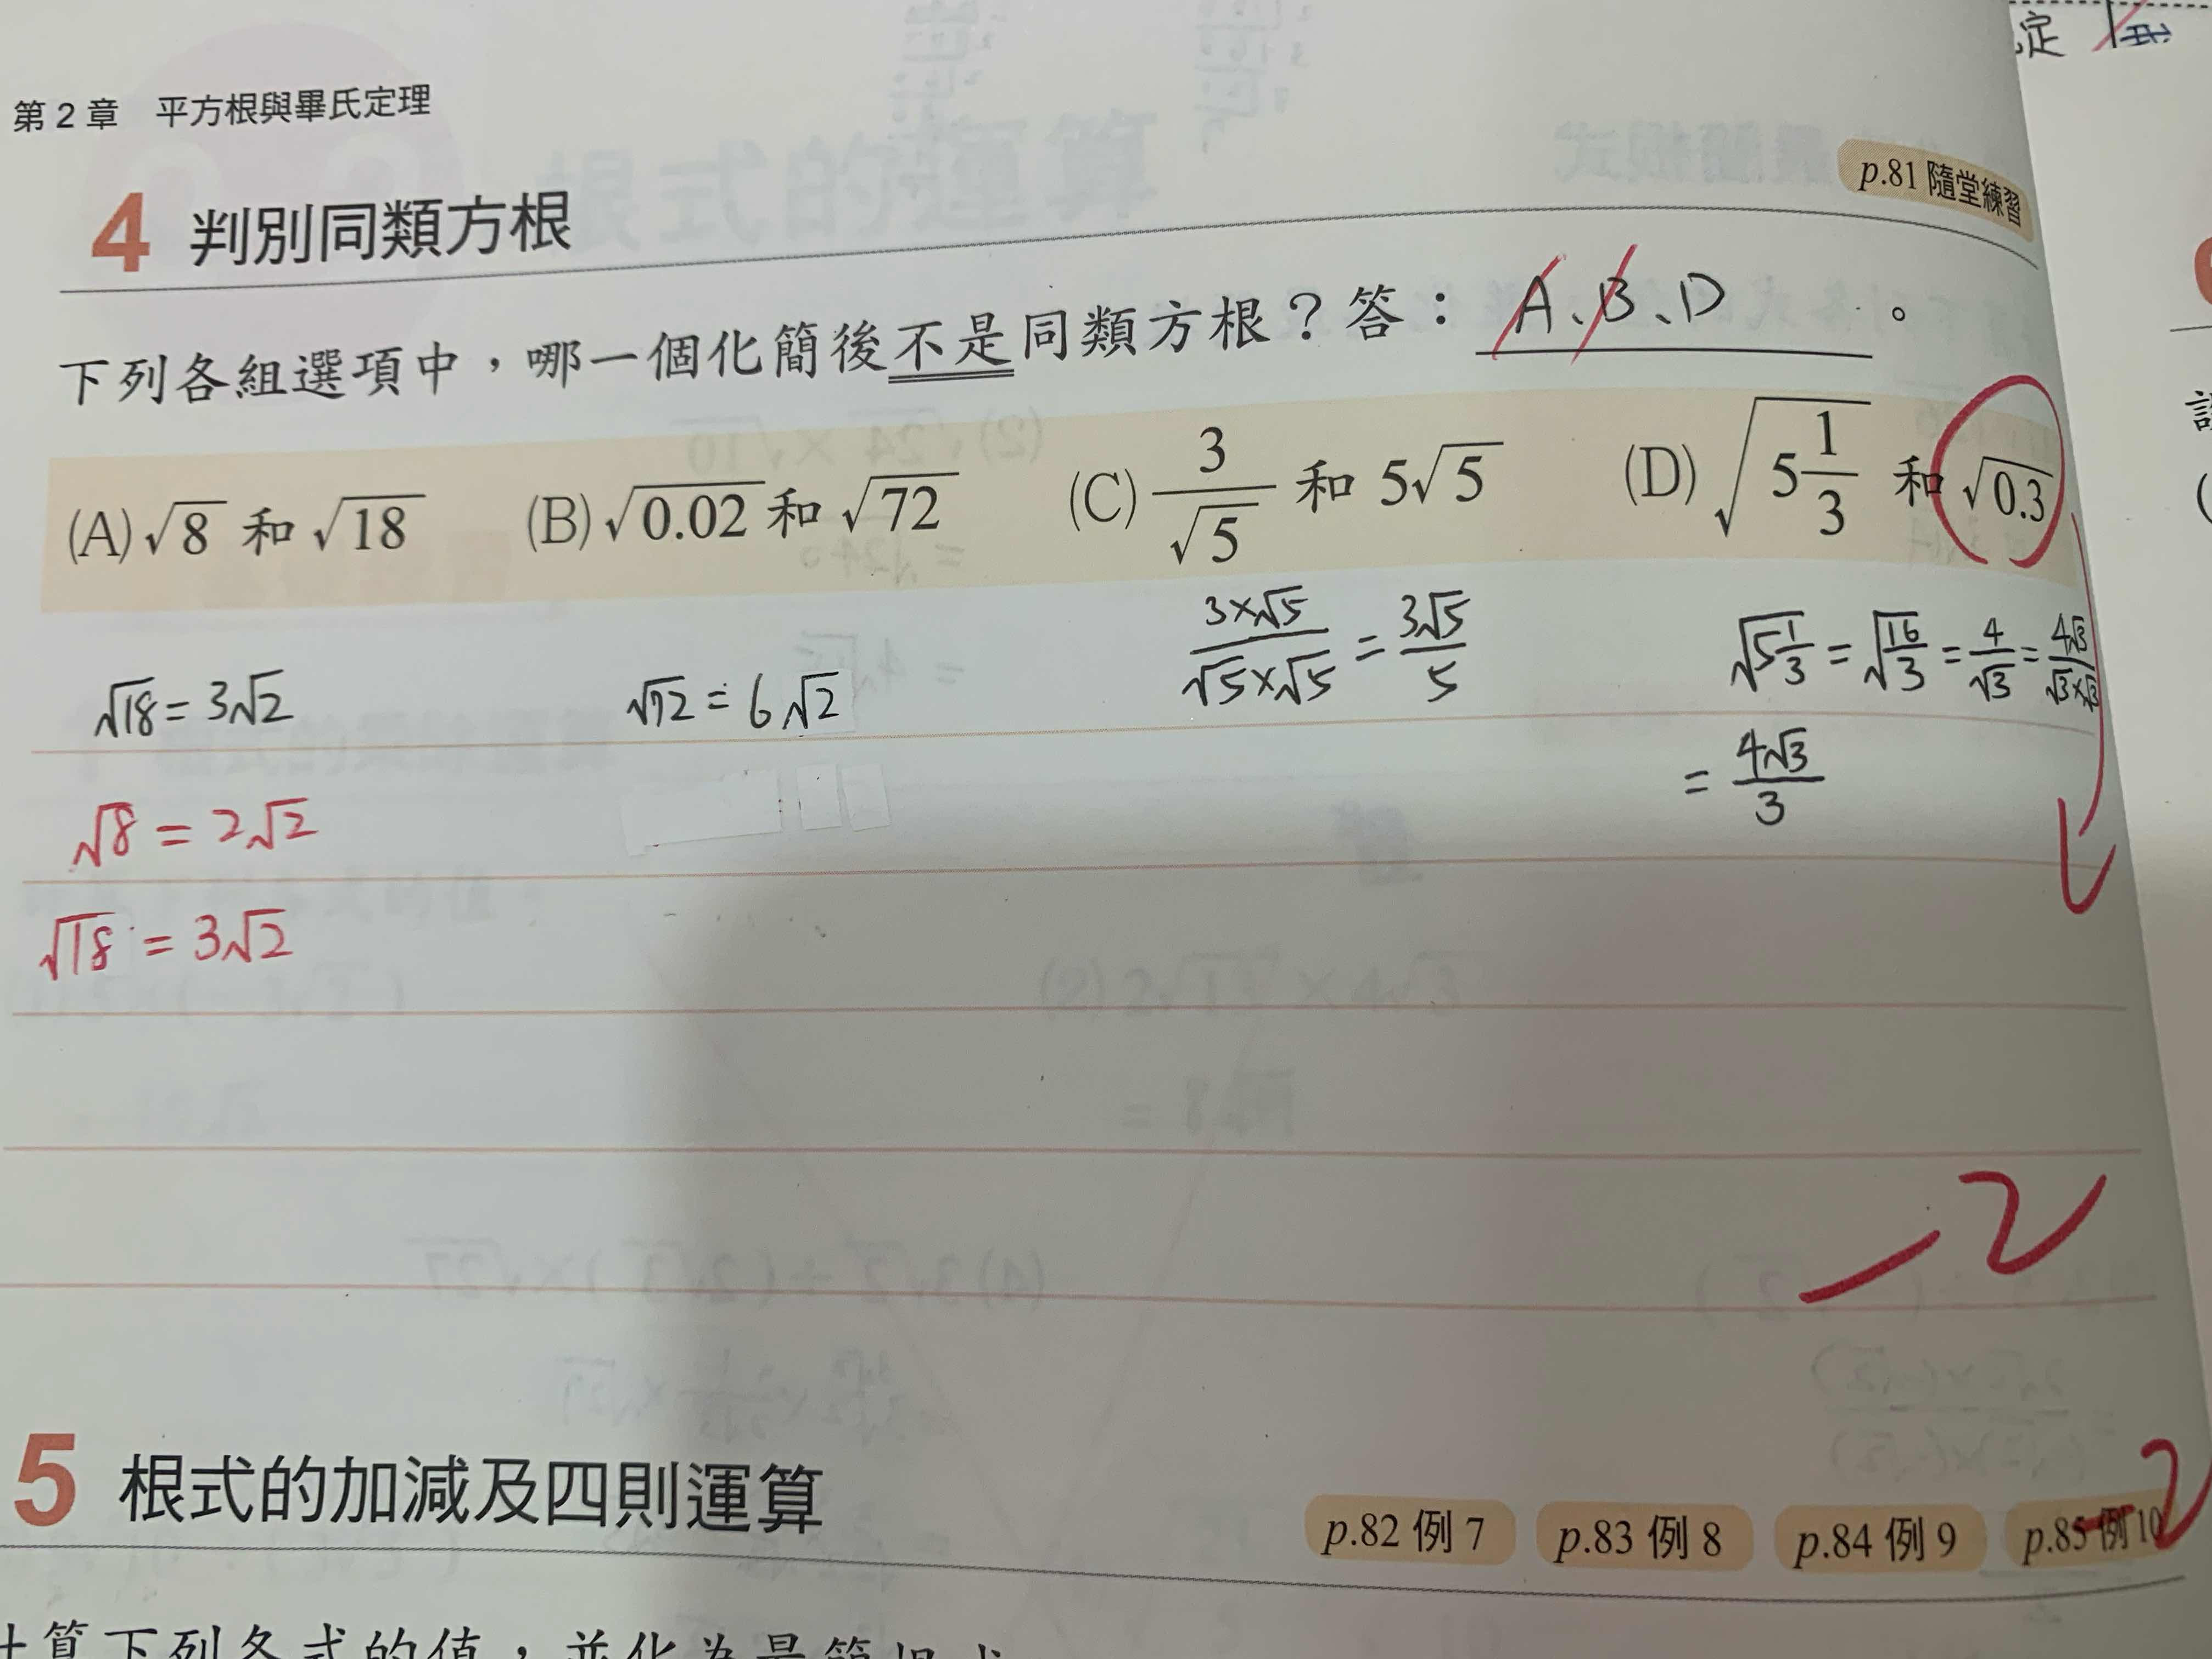 定
第 2 章 平方根與畢氏定理
p.81 隨堂練習
4 判別同類方根
下列各組選項中，哪一個化簡後不是同類方根？答：A、B、D。
(A) √8 和 √18 (B) √0.02 和 √72 (C) 3/√5 和 5√5 (D) √(5 1/3) 和 √0.3
√18 = 3√2 √72 = 6√2 (3×√5)/(√5×√5) = 3√5/5 √(5 1/3) = √(16/3) = 4/√3 = 4√3/(√3×√3)
= 4√3/3
√8 = 2√2
√18 = 3√2
-2
5 根式的加減及四則運算
p.82 例 7 p.83 例 8 p.84 例 9 p.85 例 10
-2
計算下列各式的值，並化為最簡根式